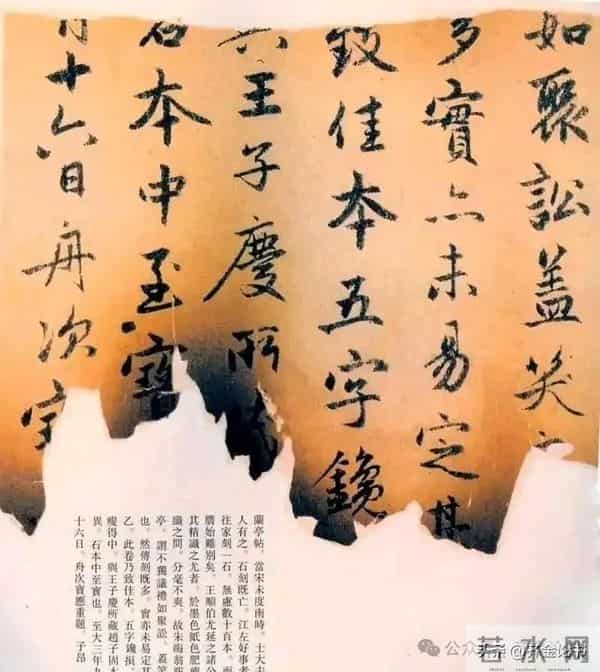 如聚訟蓋笑
多實亦未易定其
致佳本五字鑱
王子慶所
石本中至寶
月十六日舟次
蘭亭帖，當宋未度南時，士大
人有之。石刻既亡，江左好事者
往家刻一石，無慮數十百本，而
牘始難別矣。王順伯尤延之諸公
其精識之尤者。於墨色紙色肥
纖之間，分毫不爽。故朱晦翁
亭，謂不獨議禮如聚訟，蓋笑
也。然傳刻既多，實亦未易定其
乙。此卷乃致佳本，五字鑱損，
瘦得中。與王子慶所藏趙子固本
異。石本中至寶也。至大三年
十六日，舟次寶應重題。子昂
公众
水网